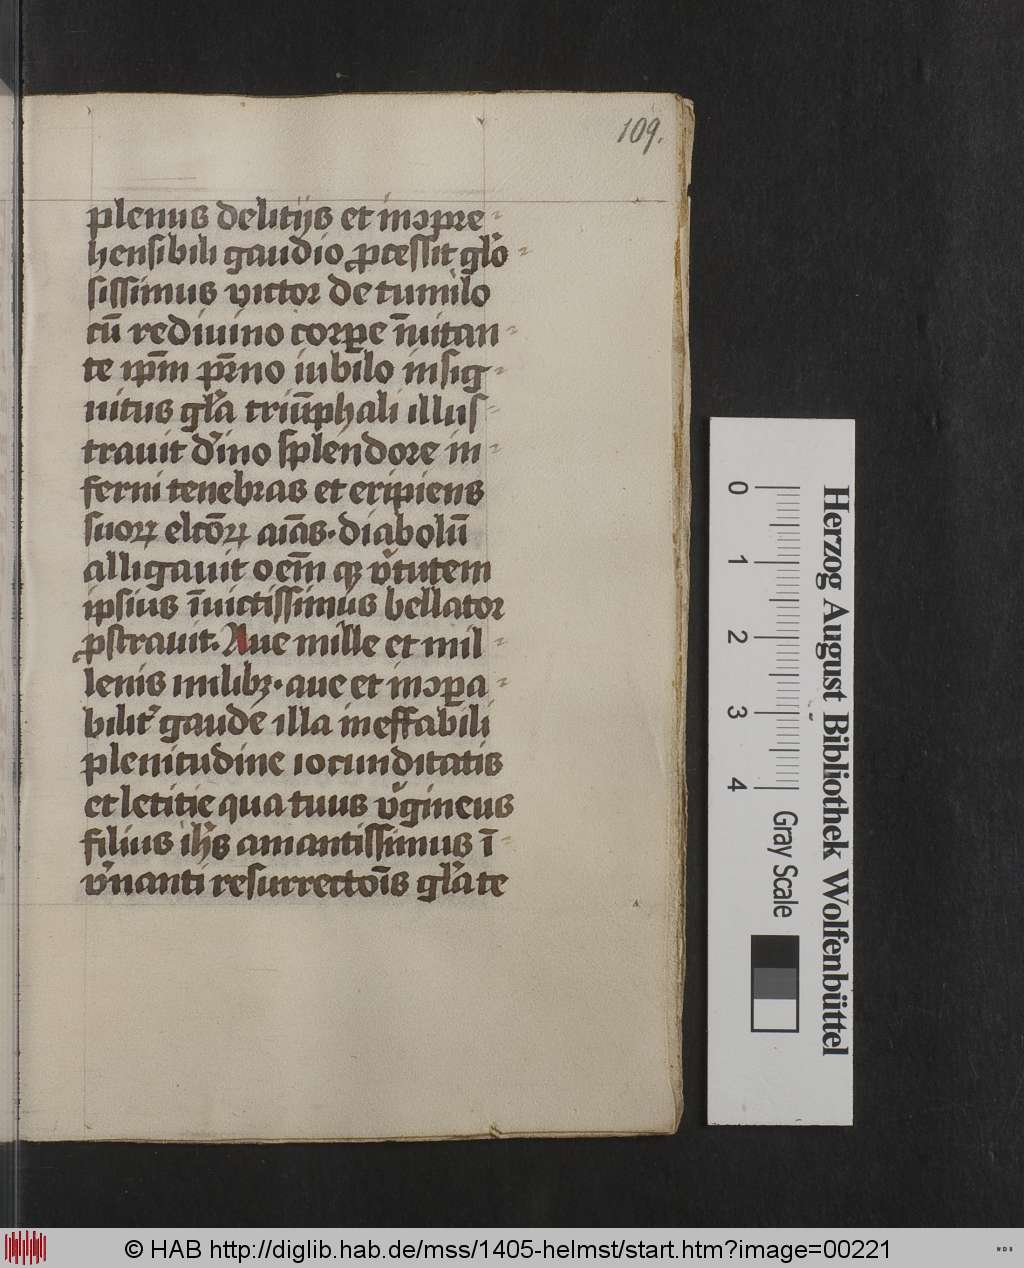 109.
plenus delitijs et inↄpre⸗
hensibili gaudio ꝓcessit gl̓o⸗
sissimus victor de tumulo
cū rediuino corꝑe ī̄uitan⸗
te ip̄m pr̄no iubilo insig⸗
nitus gl̓a triūphali illus⸗
trauit d̓ino splendore in⸗
ferni tenebras et eripiens
suoꝝ elcōꝝ aīas · diabolū
alligauit oēm qꝫ v̓tutem
ipsius īuictissimus bellator
ꝓstrauit. Aue mille et mil⸗
lenis milibꝫ · aue et inↄꝑa⸗
bilit̓ gaude illa ineffabili
plenitudine iocunditatis
et letitie qua tuus v̓gineus
filius ih̓s amantissimus ī⸗
v̓nanti resurrectōis gl̓a te
Herzog August Bibliothek Wolfenbüttel
0 1 2 3 4
Gray Scale
© HAB http://diglib.hab.de/mss/1405-helmst/start.htm?image=00221